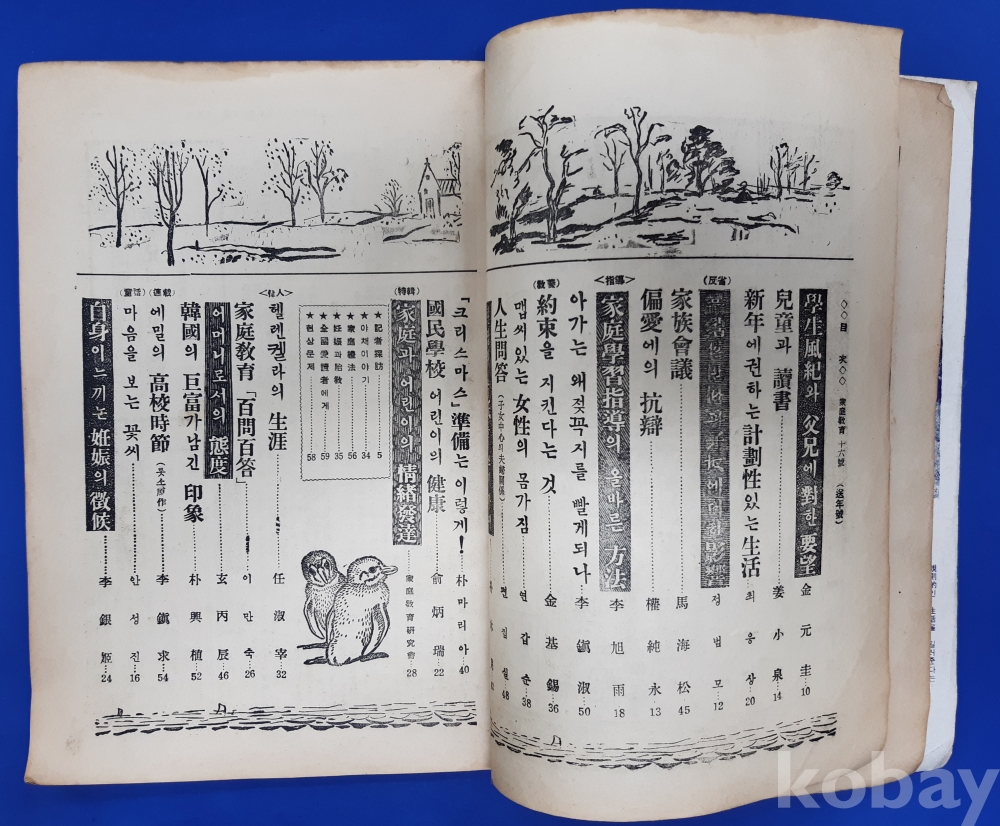 ◇◇目 次◇◇ 家庭教育 十六號 (送年號)
學生風紀와 父兄에 對한 要望 金元圭 10
兒童과 讀書 姜小泉 14
新年에권하는 計劃性있는 生活 최응상 20
<反省>
정범모 12
家族會議 馬海松 45
偏愛에의 抗辯 權純永 13
<指導>
家庭學習指導의 올바른 方法 李旭雨 18
아가는 왜젖꼭지를 빨게되나 李鎭淑 50
<敎養>
約束을 지킨다는 것 金基錫 36
맵씨있는 女性의 몸가짐 연갑순 38
人生問答 (子女中心의夫婦關係) 편집실 48
「크리스마스」準備는이렇게! 박마리아 40
國民學校 어린이의 健康 兪炳瑞 22
<特輯>
家庭과 어린이의 情緖發達 家庭敎育硏究會 28
★記者探訪 5
★야채이야기 34
★家庭禮法 56
★妊娠과胎敎 35
★全國愛讀者에게 59
★현상문제 58
<偉人>
헬렌켈라의 生涯 任淑宰 32
家庭敎育「百問百答」 이만숙 26
어머니로서의 態度 玄丙辰 46
韓國의 巨富가남긴 印象 朴興植 52
<連載>
에밀의 高校時節 (룻소原作) 李鎭求 54
<童話>
마음을 보는 꽃씨 안성진 16
自身이느끼는 姙娠의 徵候 李銀姬 24
kobay